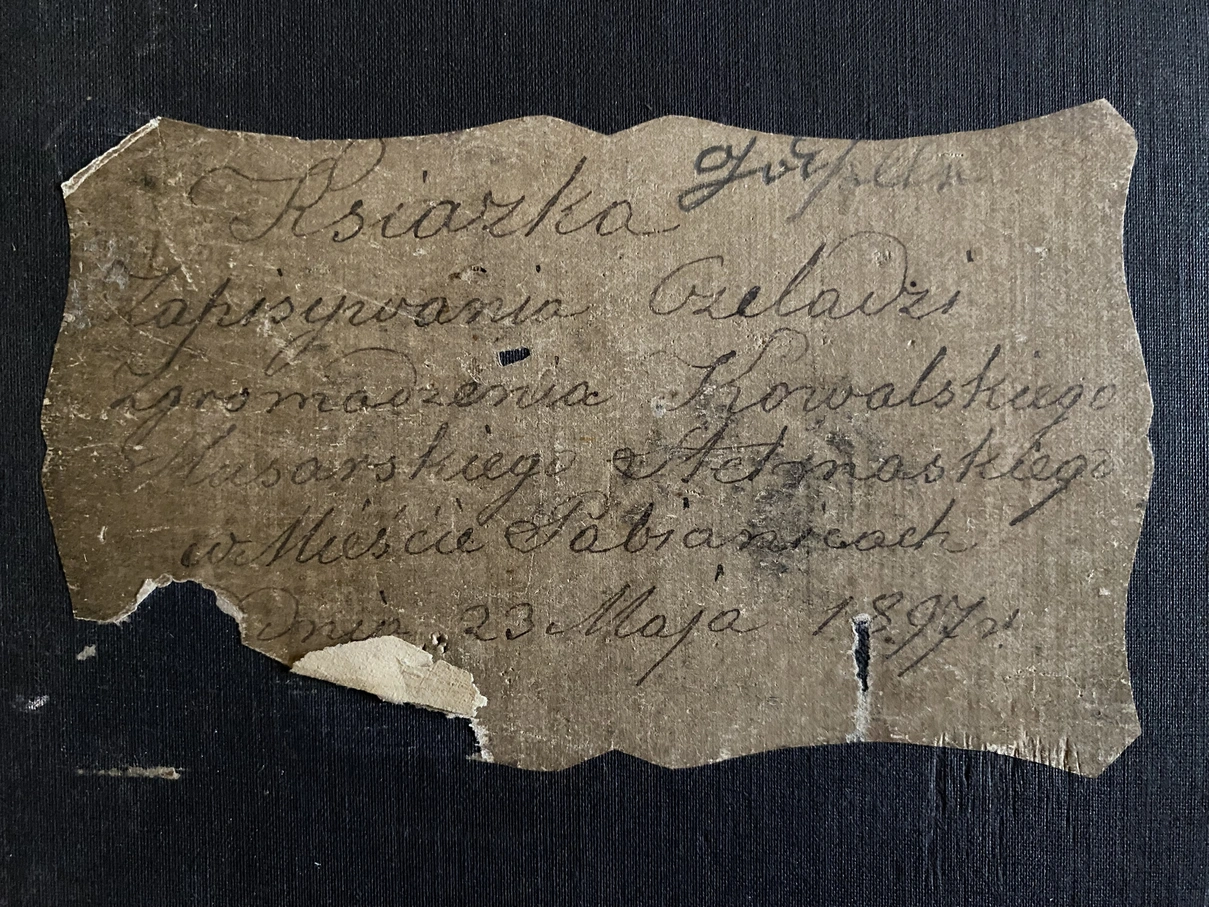 Ksiazka
Zapisywania Czeladzi
Zgromadzenia Kowalskiego
Slusarskiego Stelmaskiego
w Mieście Pabianicach
Dnia 23 Maja 1897 r